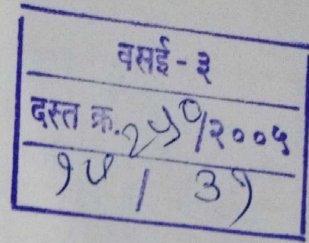 वसई - ३
दस्त क्र. २५०/२००५
१५ / ३१